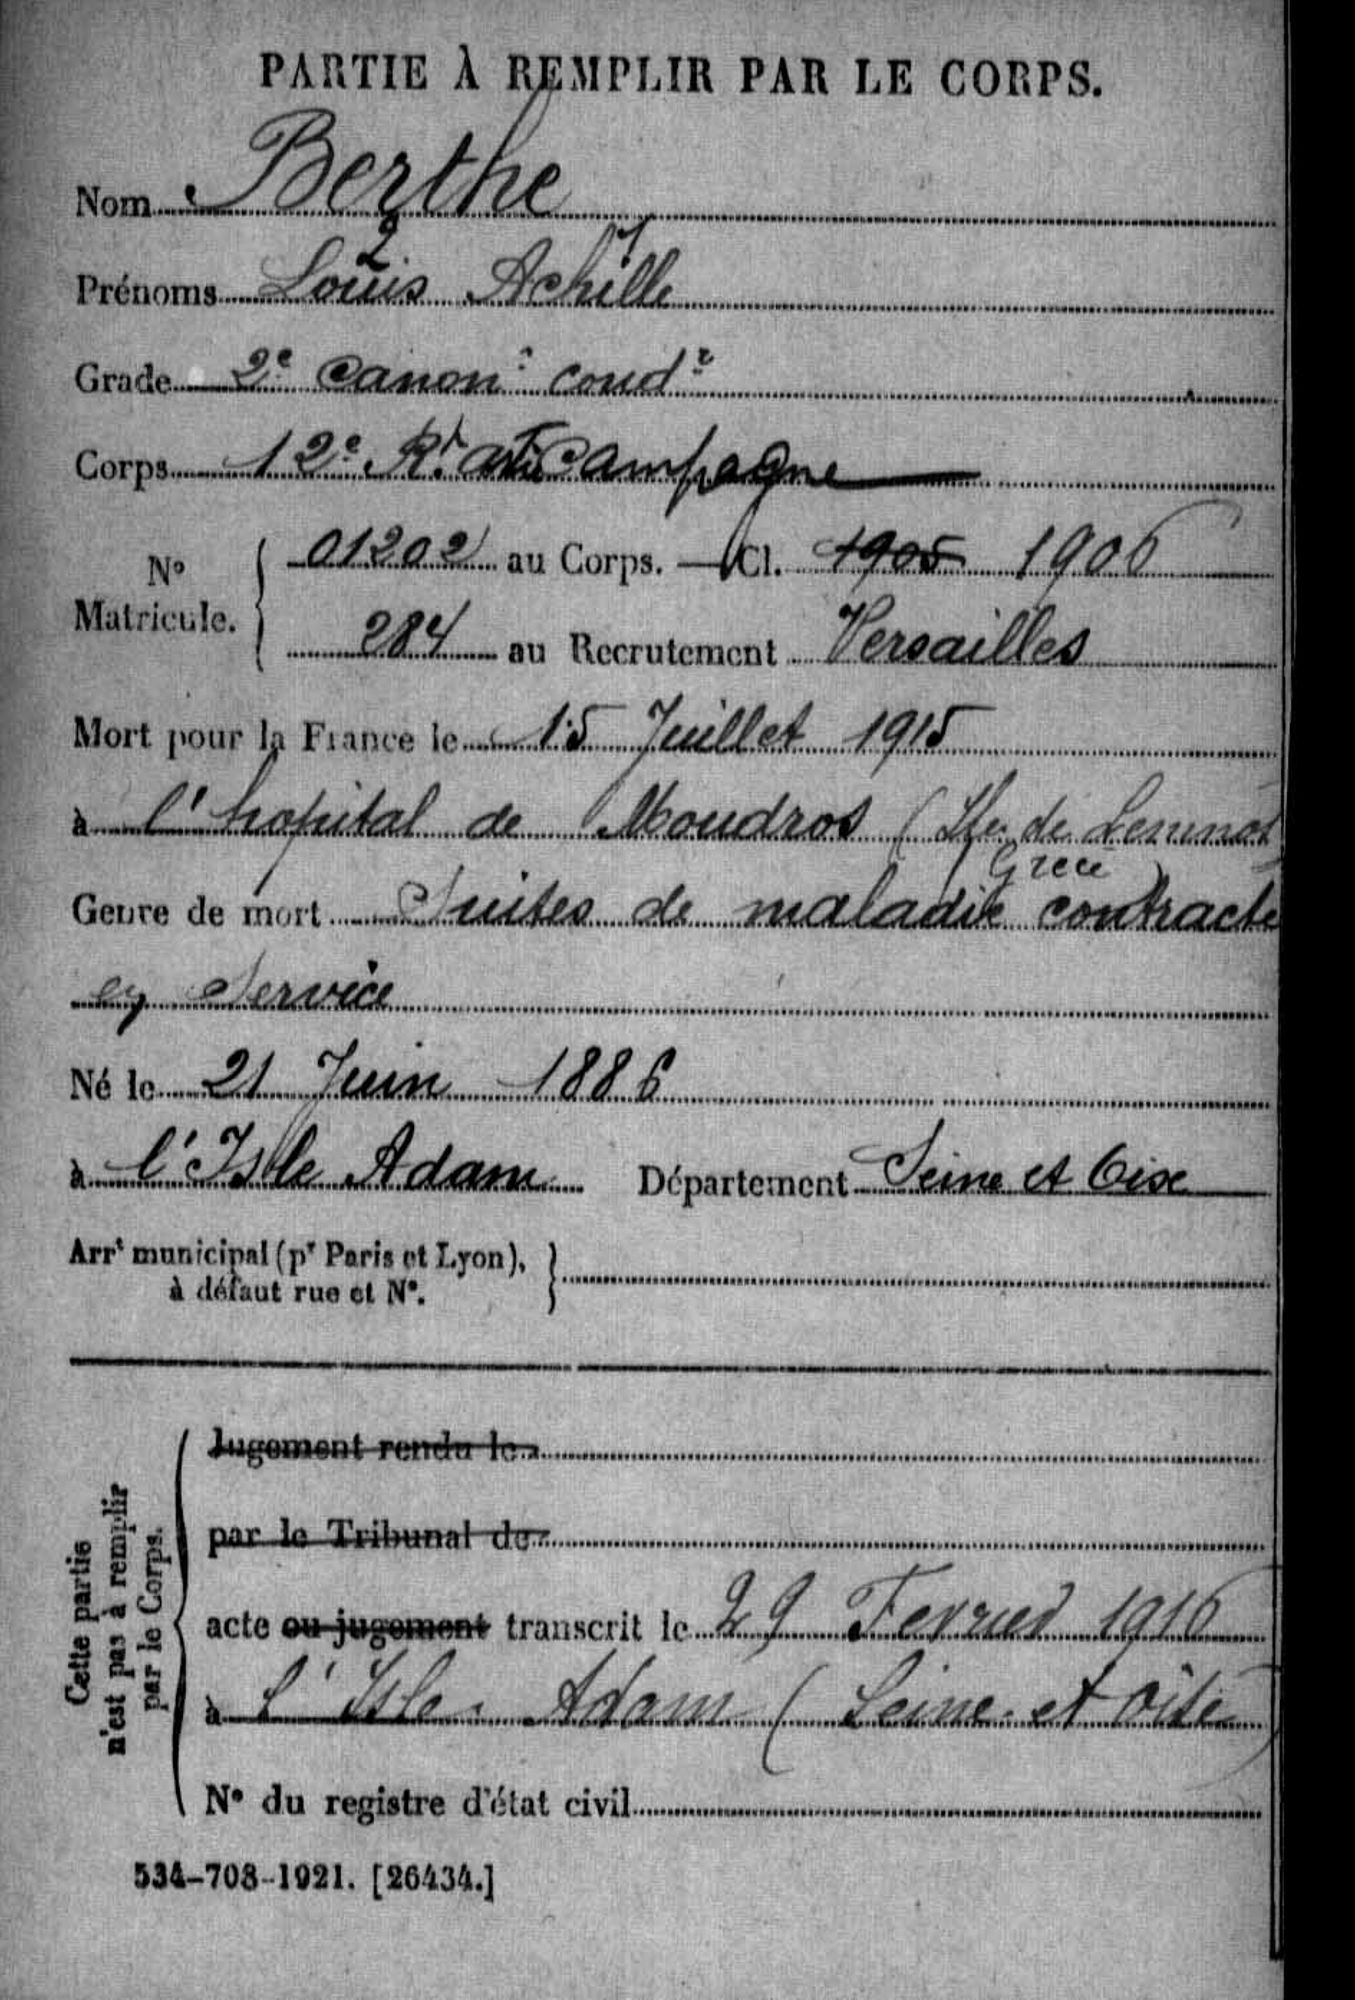 PARTIE À REMPLIR PAR LE CORPS.
Nom Berthe
2 1
Prénoms Louis Achille
Grade 2e Canonr condr
Corps 12e Rt Artie Campagne
No Matricule. { 01202 au Corps. — Cl. 1905 1906
284 au Recrutement Versailles
Mort pour la France le 15 Juillet 1915
à l'hopital de Moudros (Ile de Lemnos
Grece)
Genre de mort Suites de maladie contracté
en Service
Né le 21 Juin 1886
à l'Isle Adam Département Seine et Oise
Arrt municipal (pr Paris et Lyon), à défaut rue et No. }
Cette partie n'est pas à remplir par le Corps.
Jugement rendu le
par le Tribunal de
acte ou jugement transcrit le 29 Fevrier 1916
à l'Isle-Adam (Seine-et Oise)
No du registre d'état civil
534-708-1921. [26434.]